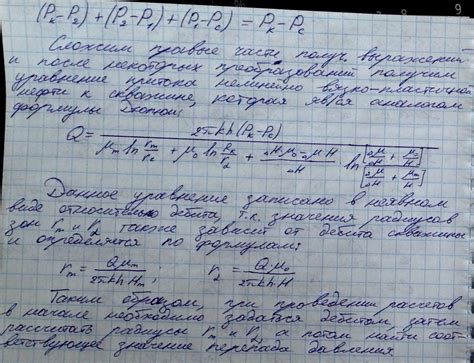 (Pк-P2)+(P2-P1)+(P1-Pc) = Pк-Pc
Сложим правые части получ. выражений
и после некоторых преобразований получим
уравнение притока нелинейно вязко-пластичной
нефти к скважине, которая явл-ся аналогом
формулы Дюпюи:
Q = 2πkh(Pк-Pc) / (μm ln rm/rc + μ0 ln rк/r2 +
Данное уравнение записано в неявном
виде относительно дебита, т.к. значения радиусов
зон rm и r2 также зависит от дебита скважины
и определятся по формулам:
rm = Qμm/2πkhHm ; r2 = Q·μ0/2πkhH
Таким образом, при проведении расчетов
в начале необходимо задаться дебитом, затем
рассчитать радиусы rm и r2, а потом найти соот-
ветствующее значение перепада давления